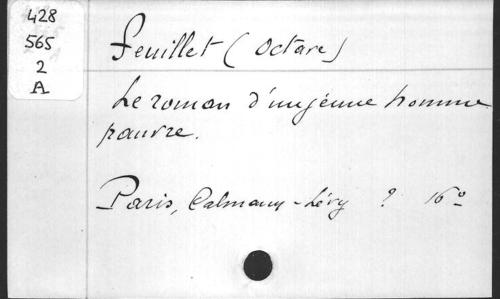 428
565
2
A
Feuillet (Octave)
Le roman d'un jeune homme
pauvre.
Paris, Calmann-Lévy ? 16º